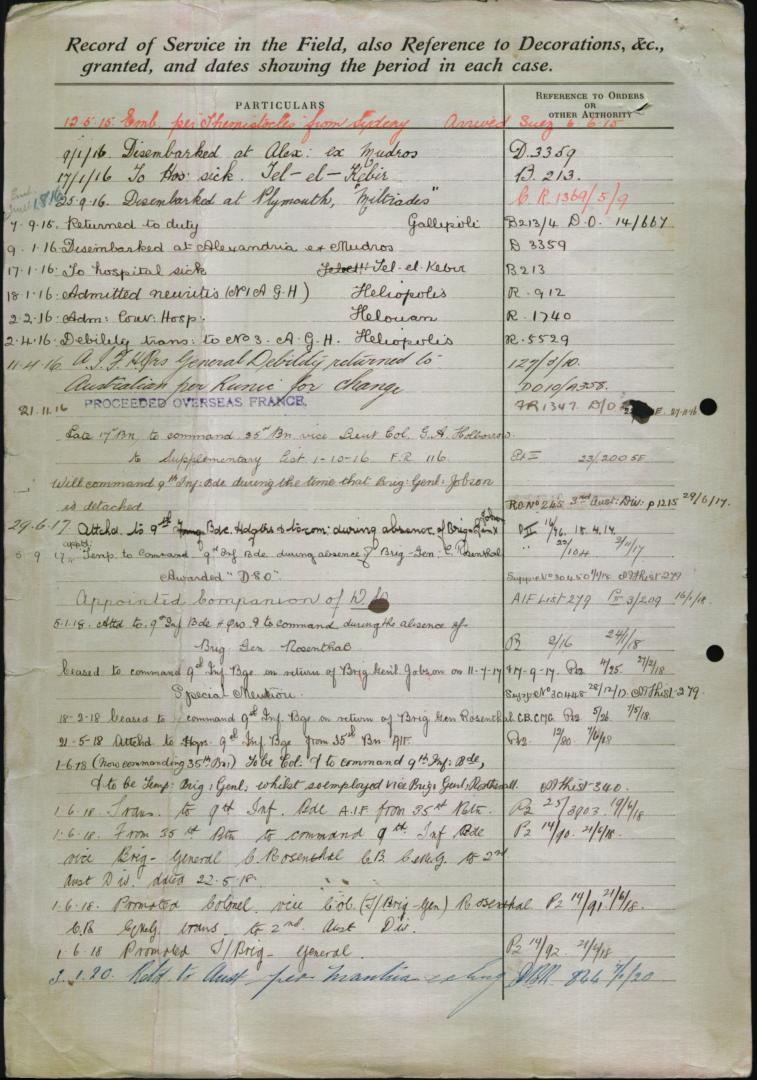 Record of Service in the Field, also Reference to Decorations, &c.,
granted, and dates showing the period in each case.
PARTICULARS
REFERENCE TO ORDERS
OR
OTHER AUTHORITY
12-5-15 Emb. per "Themistocles" from Sydney Arrived Suez 6-6-15
9/1/16 Disembarked at Alex: ex Mudros D.3359
17/1/16 To Hos: sick. Tel-el-Kebir B. 213.
25-9-16. Disembarked at Plymouth, "Miltiades" C.R. 1369/5/9
7-9-15. Returned to duty Gallipoli B213/4 D.O. 14/667
9-1-16 Disembarked at Alexandria ex Mudros D 3359
17-1-16. To hospital sick Tel-el-Kebir B213
18-1-16. Admitted neuritis (No 1 A G H) Heliopolis R. 912
2-2-16. Adm: Conv: Hosp: Helouan R. 1740
2-4-16. Debility trans: to No 3. A. G. H. Heliopolis R. 5529
11-4-16 A.I.F. HQrs General Debility returned to 127/3/10.
Australian per Runic for change DO10/A358.
21.11.16 PROCEEDED OVERSEAS FRANCE. FR1347. D/O 27-11-16
Late 17th Bn. to command 35th Bn vice Lieut Col. G.A. Holborrow
to Supplementary Est 1-10-16 F.R. 116. 23/200 SE
Will command 9th Inf: Bde during the time that Brig: Genl: Jobson
is detached RO No 265 3rd Aust: Div: p1215 29/6/17.
29.6.17 Attchd. to 9th Bde. Hdqtrs & to com: during absence of Brig-Gen Jobson 18.4.14.
5-9 17 apptd: Temp. to Command 9th Inf Bde during absence of Brig-Gen: C. Rosenthal
Awarded "DSO". Supp No 30450 AMhist 279
Appointed Companion of D.S.O AIF List 279 3/209 16/1/18
5.1.18. Attd to. 9th Inf Bde HQrs & to command during the absence of
Brig. Gen Rosenthal R 2/16 24/1/18
Ceased to command 9th Inf. Bge on return of Brig Genl. Jobson on 11-7-17 & 17-9-17. 4/25. 27/2/18
Special Mention. Supp No 30448 28/12/17. AMhist-279.
18-2-18 Ceased to command 9th Inf. Bge on return of Brig Gen Rosenthal C.B. CMG. 5/26. 7/5/18.
21-5-18 Attchd to Hqrs. 9th Inf Bge from 35th Bn AIF. 12/80 7/6/18
1-6-18 (Now commanding 35th Bn) To be Col: & to command 9th Inf: Bde,
& to be Temp: Brig: Genl, whilst so employed vice Brig: Genl: Rosenthall. AMhist-340.
1-6.18 Trans. to 9th Inf. Bde A.I.F from 35th Batn. P2 25/3903. 19/6/18
1-6.18. From 35th Btn to command 9th Inf Bde P2 14/90. 21/6/18.
vice Brig-General C. Rosenthal C.B. C.M.G. to 2nd
Aust Div. dated 22-5-18.
1-6.18 Promoted Colonel vice Col: (T/Brig-Gen) Rosenthal P2 14/91 21/6/18.
C.B C.M.G. trans. to 2nd Aust Div.
1-6-18 Promoted T/Brig-General. P2 14/92. 21/6/18
3.1.20. Retd to Aust per ex Eng DBR. 866 7/1/20